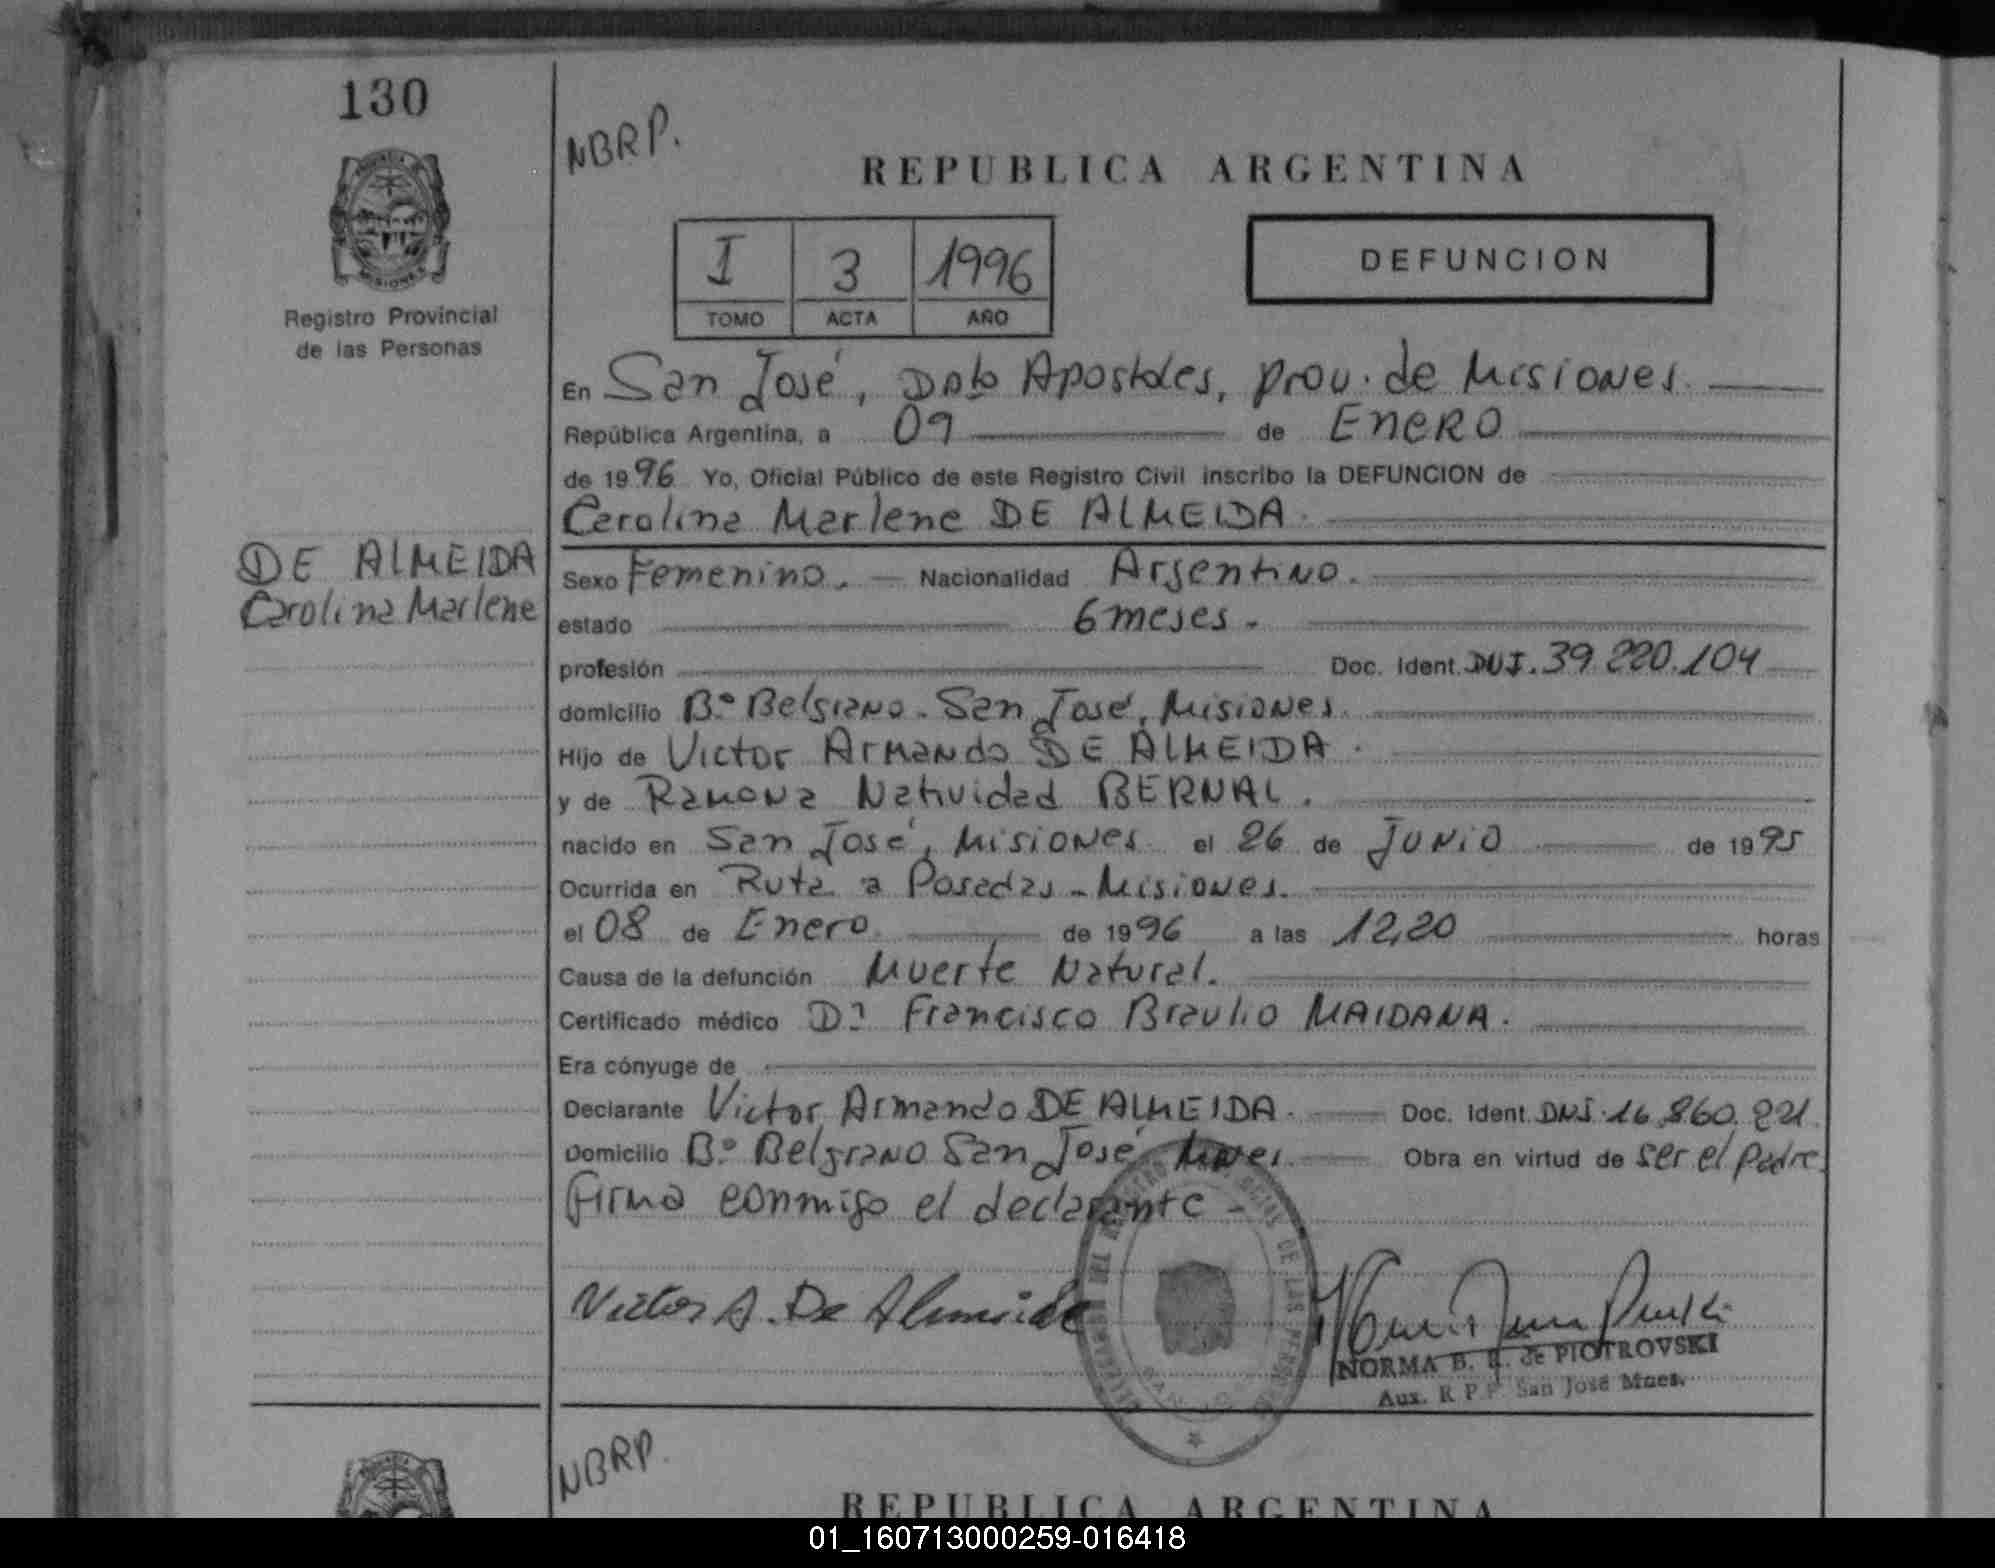 130
NBRP.
REPUBLICA ARGENTINA
I 3 1996
TOMO ACTA AÑO
DEFUNCION
MISIONES
Registro Provincial
de las Personas
En San José, Dpto Apostoles, prov. de Misiones.
República Argentina, a 09 de ENERO
de 1996 Yo, Oficial Público de este Registro Civil inscribo la DEFUNCION de
Carolina Marlene DE ALMEIDA.
DE ALMEIDA
Carolina Marlene
Sexo Femenino. Nacionalidad Argentino.
estado 6 meses.
profesión Doc. Ident. DNI. 39.220.104
domicilio B.º Belgrano. San José, Misiones.
Hijo de Victor Armando DE ALMEIDA.
y de Ramona Natividad BERNAL.
nacido en San José, Misiones el 26 de JUNIO de 1995
Ocurrida en Ruta a Posadas - Misiones.
el 08 de Enero de 1996 a las 12,20 horas
Causa de la defunción Muerte Natural.
Certificado médico Dr Francisco Braulio MAIDANA.
Era cónyuge de
Declarante Victor Armando DE ALMEIDA. Doc. Ident. DNI. 16.860.221.
Domicilio B.º Belgrano San José, Mnes. Obra en virtud de ser el padre.
Firma conmigo el declarante -
Victor A. De Almeida
NORMA B. R. de PIOTROVSKI
Aux. R P.P. San José Mnes.
NBRP.
REPUBLICA ARGENTINA
01_160713000259-016418